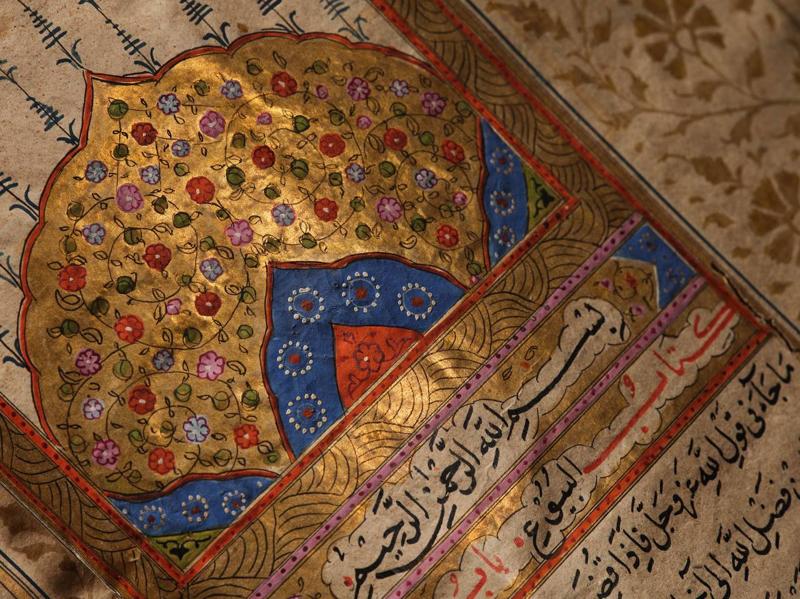 بسم الله الرحمن الرحيم
كتاب البيوع باب
ما جاء في قول الله عز وجل فاذا قضـ
فضل الله الى